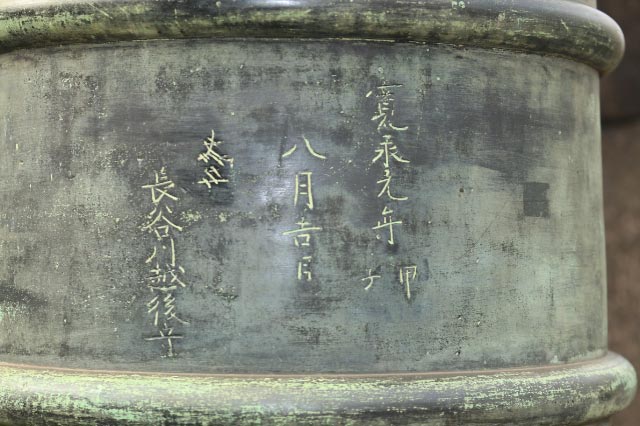 寛永元年甲子
八月吉日
長谷川越後守